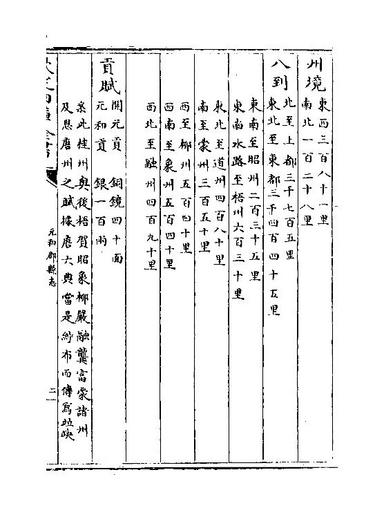 州境
東西三百八十一里
南北一百二十八里
八到
北至上都三千七百五里
東北至東都三千四百四十五里
東南至昭州二百三十五里
東南水路至梧州六百三十里
東北至道州四百八十里
南至蒙州三百五十里
西至柳州五百四十里
西南至象州五百四十里
西北至融州四百九十里
貢賦
開元貢 銅鏡四十面
元和貢 銀一百兩
案此桂州與後梧賀昭象柳嚴融龔富蒙諸州
及思唐州之賦據唐六典當是紵布而傳寫竝缺
元和郡縣志
二